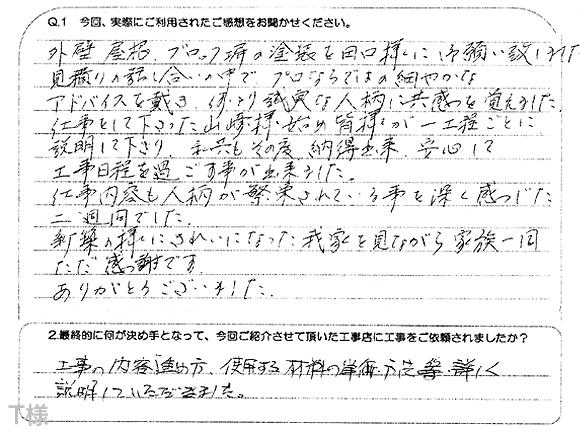 Q.1 今回、実際にご利用されたご感想をお聞かせください。
外壁 屋根、ブロック塀の塗装を田口様にお願い致しました
見積りの話し合いの中で プロならではの細やかな
アドバイスを戴き、何より誠実な人柄に共感を覚えました。
仕事をして下さった山崎様始め皆様が一工程ごとに
説明して下さり、私共もその度、納得出来、安心して
工事日程を過ごす事が出来ました。
仕事内容も人柄が繁栄されている事を深く感じた
二週間でした。
新築の様にきれいになった我家を見ながら家族一同
ただ感謝です
ありがとうございました。
2.最終的に何が決め手となって、今回ご紹介させて頂いた工事店に工事をご依頼されましたか?
工事の内容進め方、使用する材料の 方法等 詳しく
説明していただきました。
T様